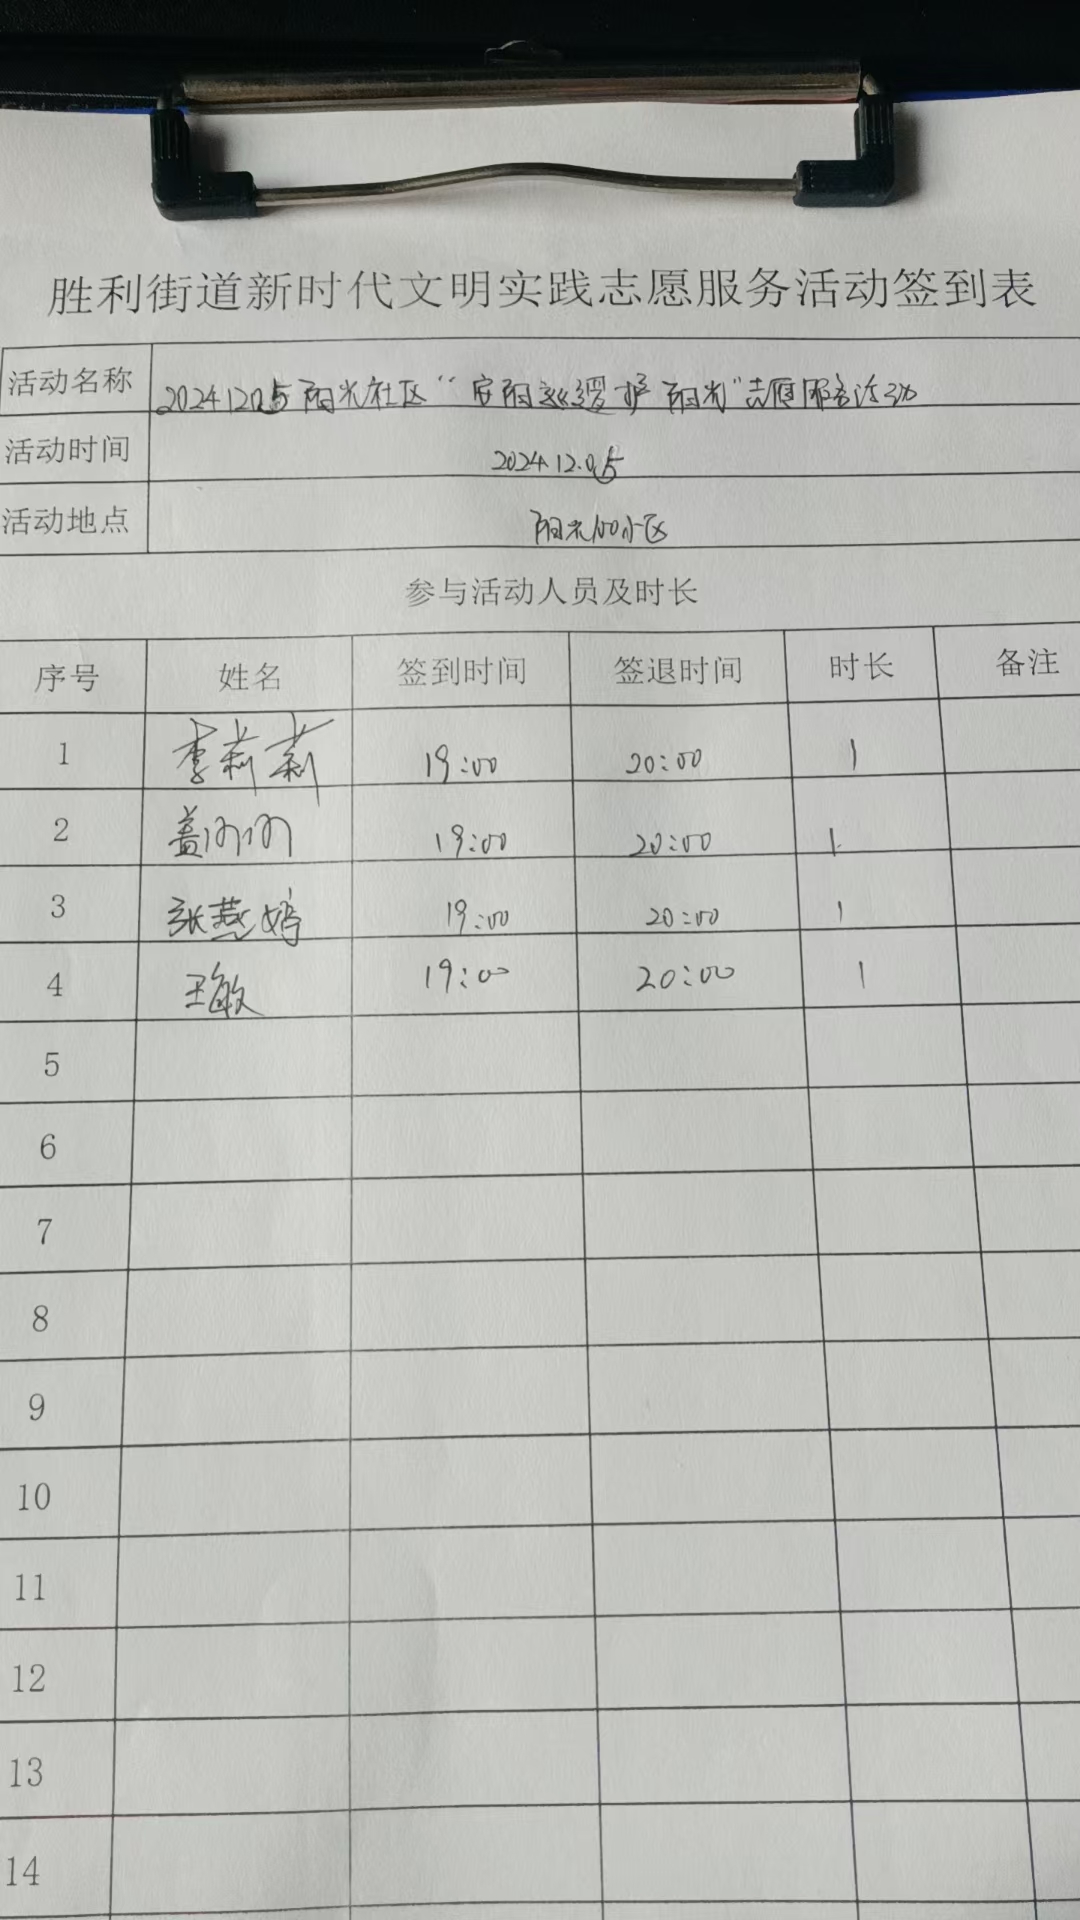 胜利街道新时代文明实践志愿服务活动签到表
活动名称 20241205阳光社区“安阳巡逻 护阳光”志愿服务活动
活动时间 2024.12.05
活动地点 阳光100小区
参与活动人员及时长
序号 姓名 签到时间 签退时间 时长 备注
1 李莉莉 19:00 20:00 1
2 盖 19:00 20:00 1
3 张燕婷 19:00 20:00 1
4 王敏 19:00 20:00 1
5
6
7
8
9
10
11
12
13
14